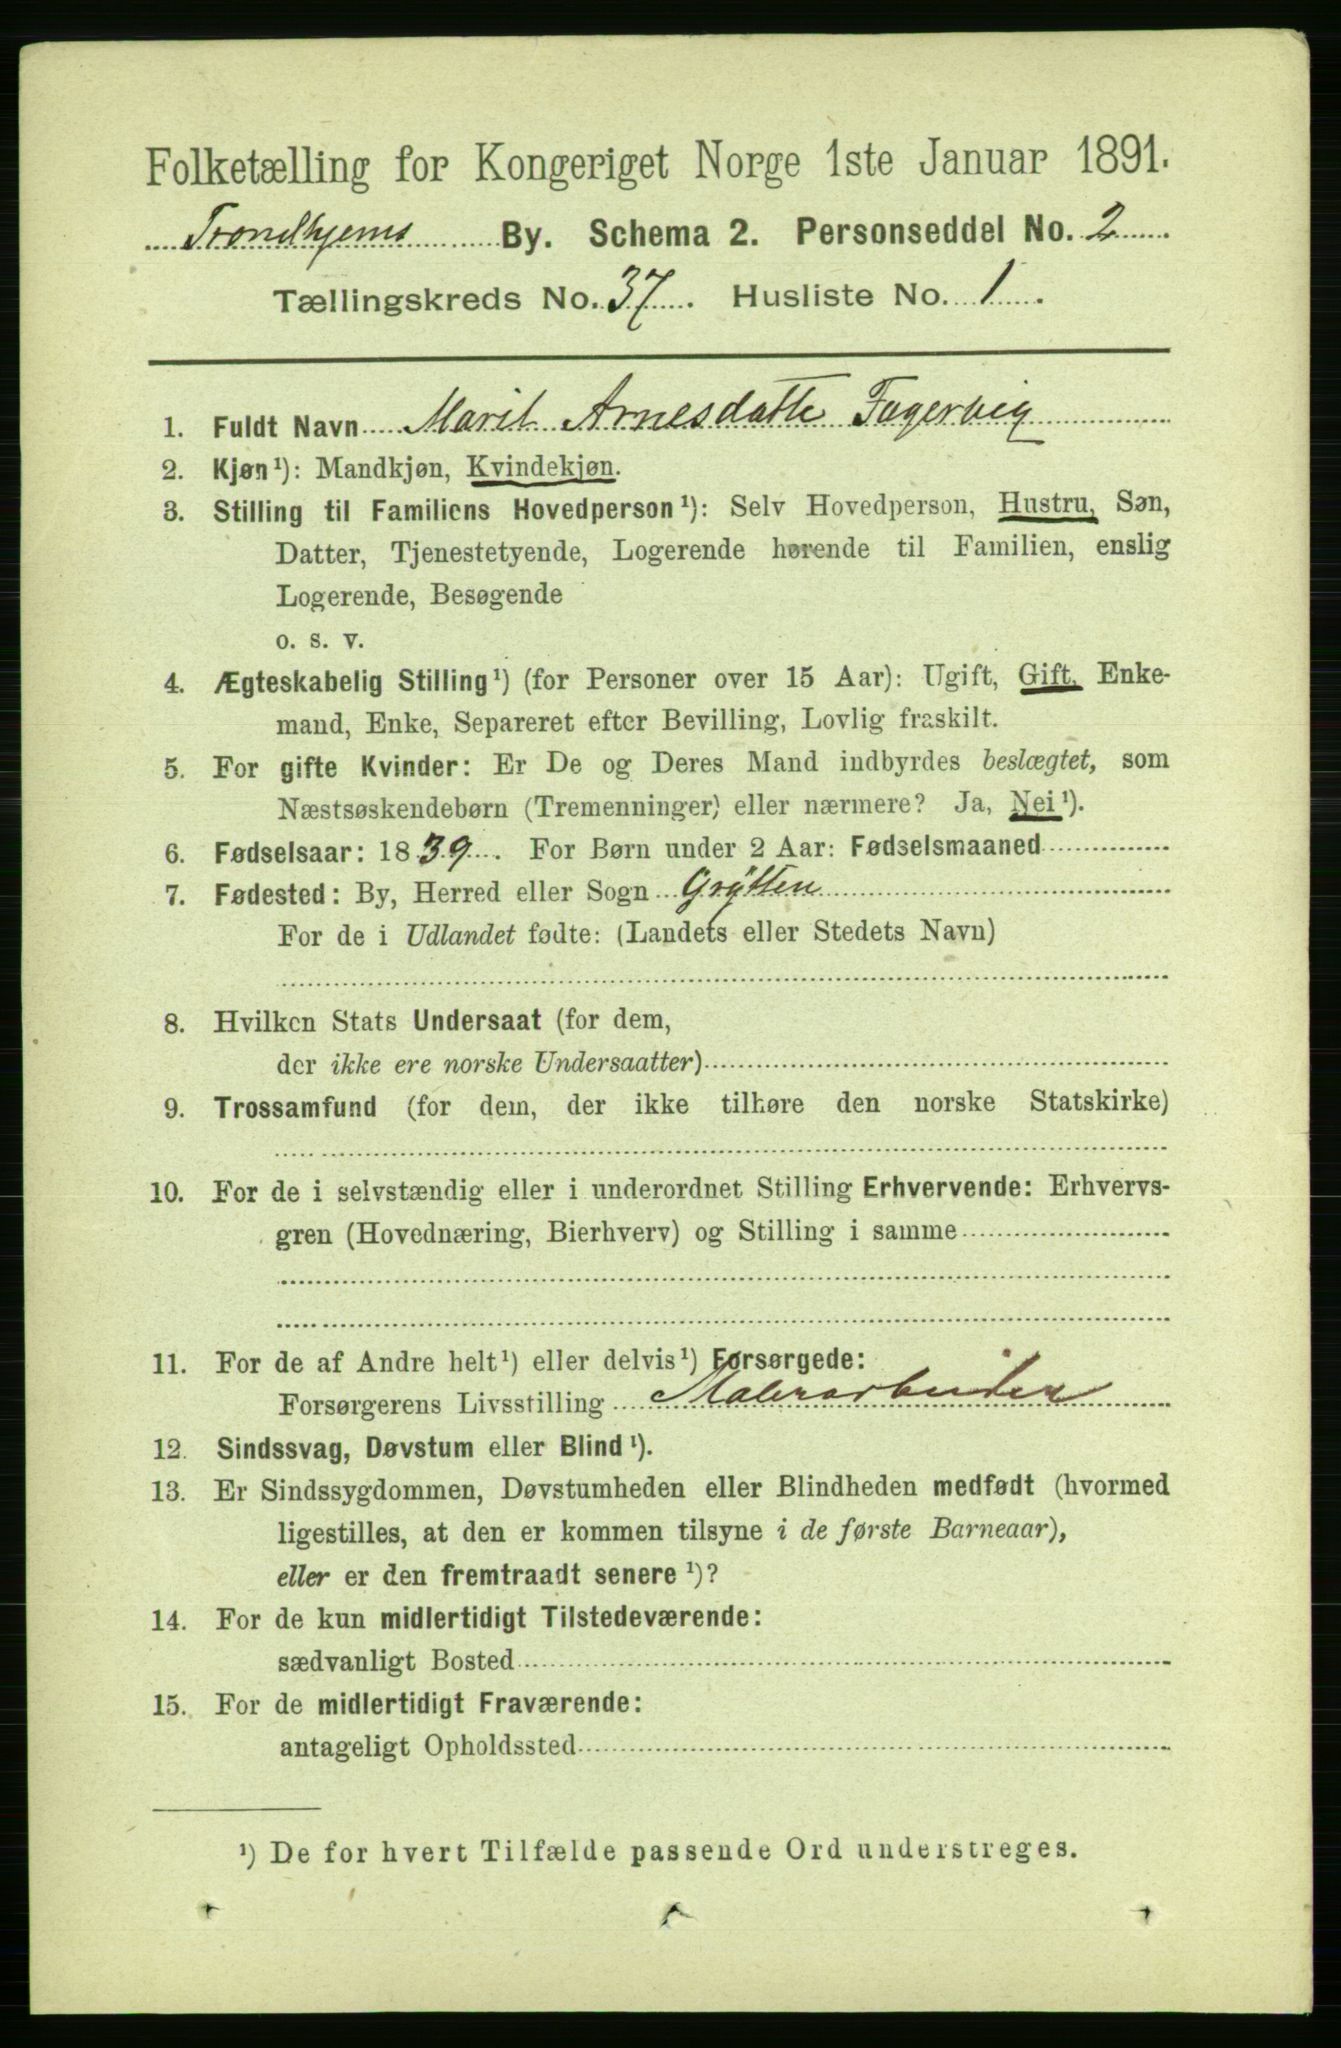 Folketælling for Kongeriget Norge 1ste Januar 1891.
Trondhjems By. Schema 2. Personseddel No. 2
Tællingskreds No. 37. Husliste No. 1.
1. Fuldt Navn Marit Arnesdatte Fagerveig
2. Kjøn¹): Mandkjøn, Kvindekjøn.
3. Stilling til Familiens Hovedperson¹): Selv Hovedperson, Hustru, Søn,
Datter, Tjenestetyende, Logerende hørende til Familien, enslig
Logerende, Besøgende
o. s. v.
4. Ægteskabelig Stilling¹) (for Personer over 15 Aar): Ugift, Gift, Enke-
mand, Enke, Separeret efter Bevilling, Lovlig fraskilt.
5. For gifte Kvinder: Er De og Deres Mand indbyrdes beslægtet, som
Næstsøskendebørn (Tremenninger) eller nærmere? Ja, Nei¹).
6. Fødselsaar: 1839. For Børn under 2 Aar: Fødselsmaaned
7. Fødested: By, Herred eller Sogn Grÿtten
For de i Udlandet fødte: (Landets eller Stedets Navn)
8. Hvilken Stats Undersaat (for dem,
der ikke ere norske Undersaatter)
9. Trossamfund (for dem, der ikke tilhøre den norske Statskirke)
10. For de i selvstændig eller i underordnet Stilling Erhvervende: Erhvervs-
gren (Hovednæring, Bierhverv) og Stilling i samme
11. For de af Andre helt¹) eller delvis¹) Forsørgede:
Forsørgerens Livsstilling Malerarbeider
12. Sindssvag, Døvstum eller Blind¹).
13. Er Sindssygdommen, Døvstumheden eller Blindheden medfødt (hvormed
ligestilles, at den er kommen tilsyne i de første Barneaar),
eller er den fremtraadt senere¹)?
14. For de kun midlertidigt Tilstedeværende:
sædvanligt Bosted
15. For de midlertidigt Fraværende:
antageligt Opholdssted
¹) De for hvert Tilfælde passende Ord understreges.